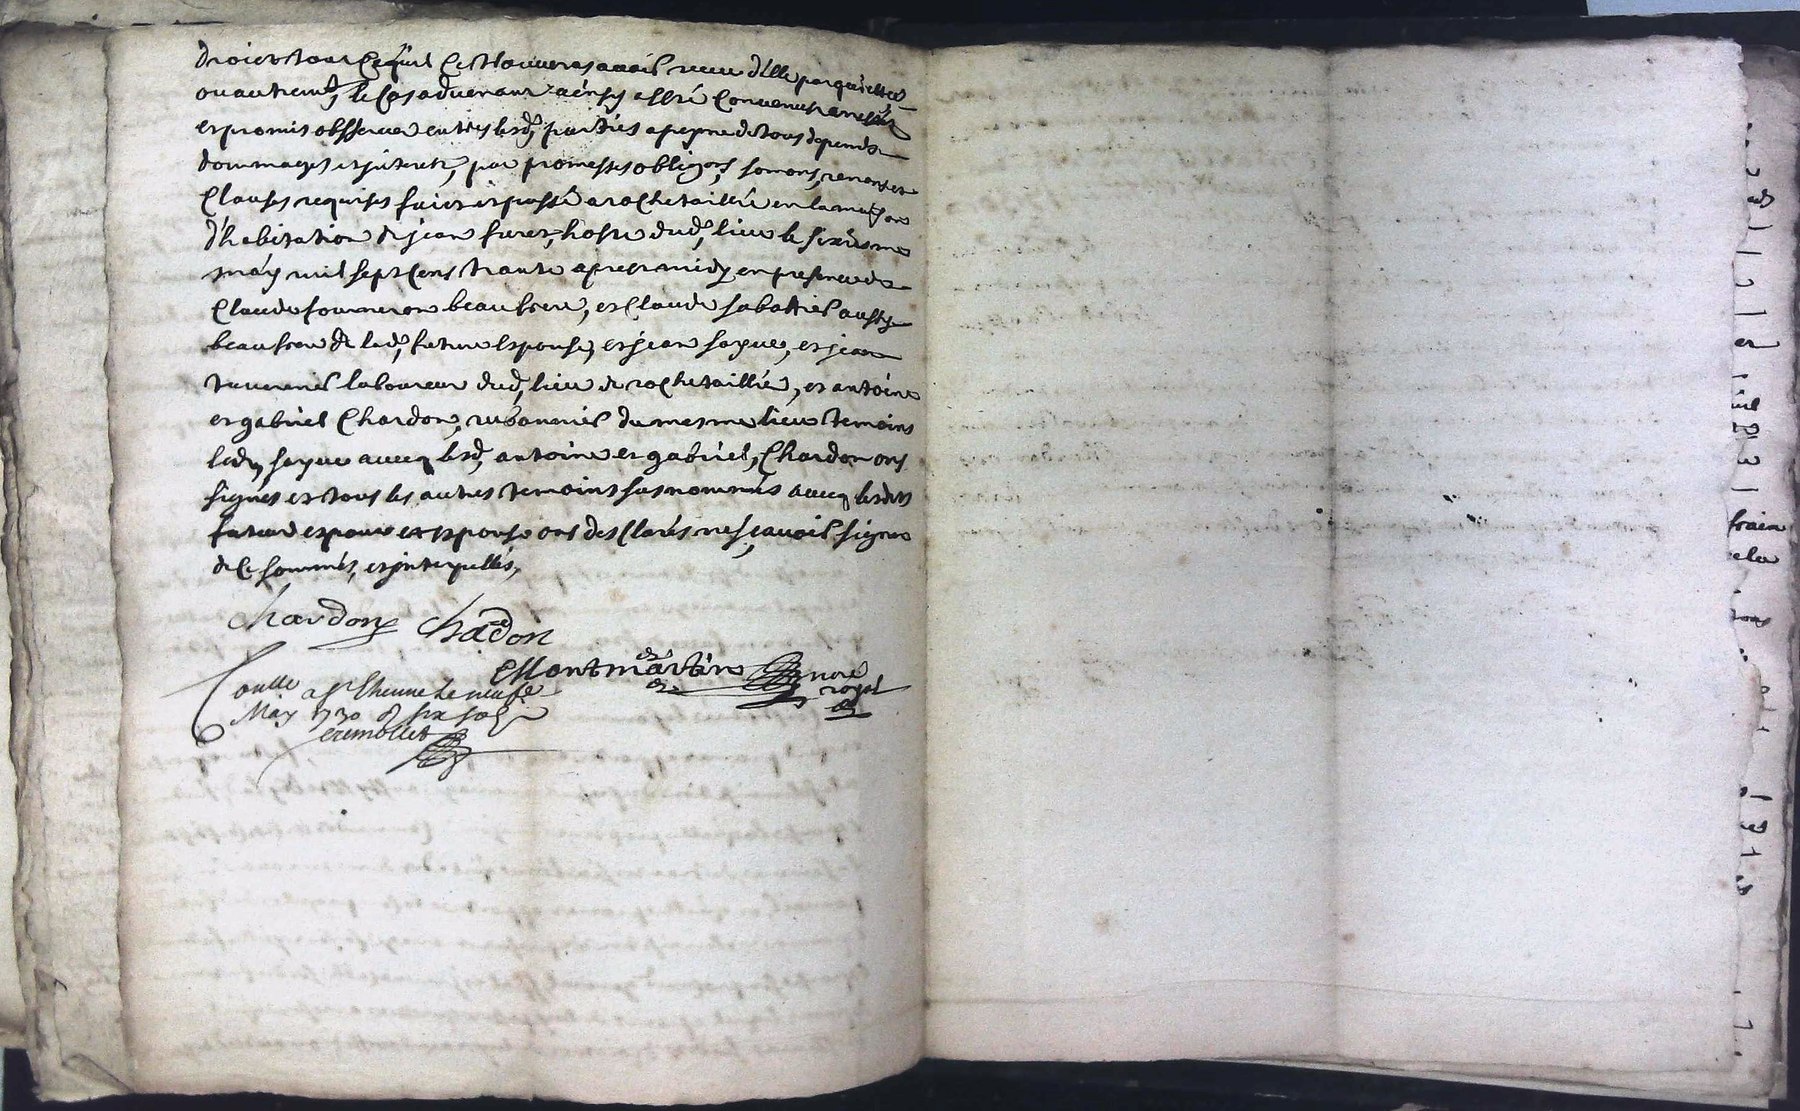 droict tout ce qu'il ce trouveras avoir receu d'elle par quictce
ou autremt, le cas advenant ainsy esté convenu
et promis observer entres lesd, parties a peyne de tous depends
dommages et jnterest, par promesses obligons, somons, renons et
clauses requises faict et passé a rochetaillié en la maison
d'habitation de jean furet, hoste dud, lieu le sixiesme
may mil sept cens trante apres midy en presence de
Claude fourneron beaufrere, et Claude sabattier aussy
beaufrere de lad, future espouse, et jean sayue, et jean
tavernier laboureur dud, lieu de rochetaillié, et antoine
et gabriel Chardon, rubannier du mesme lieu temoins
led, sayue avecq lesd, antoine et gabriel, Chardon ons
signés et tous les autres temoins susnommés avecq lesdits
futeur espoux et espouse ons desclarés ne sçavoir signer
de ce sommés, et jnterpellés,
chardon chardon
Montmartin nore
royal
Conlle a St Etienne le neufe
May 1730 R six sols